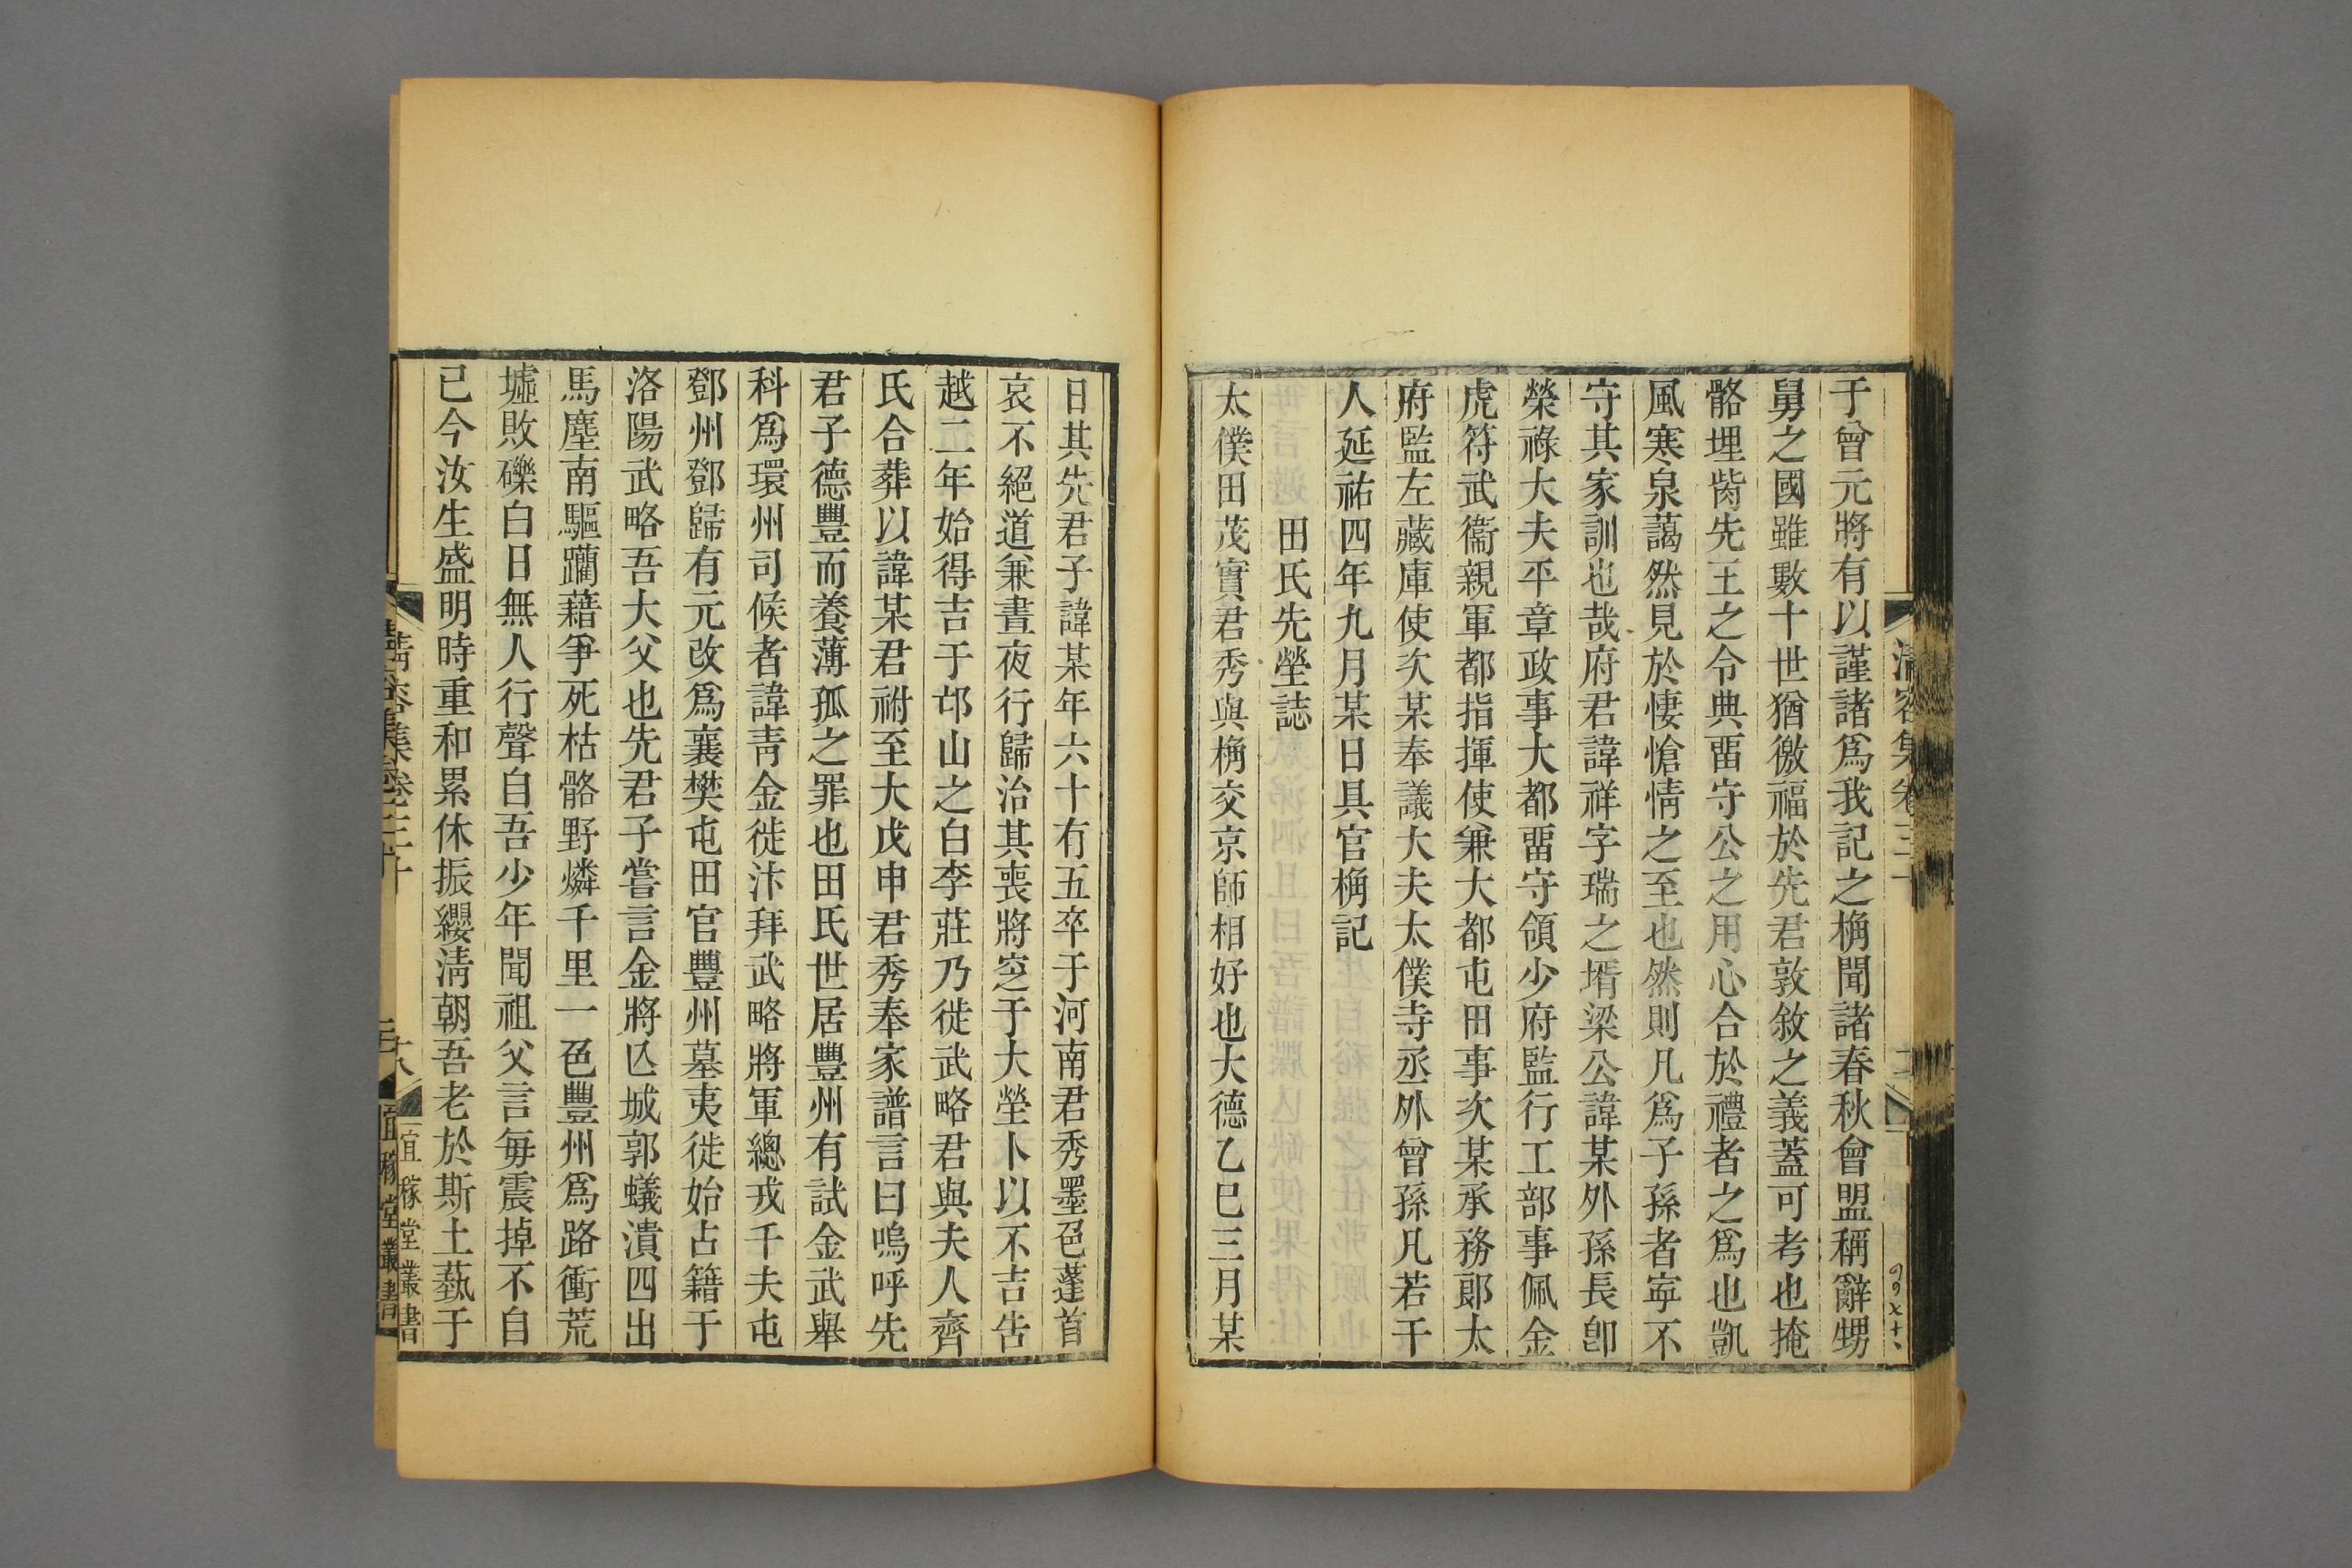 于曾元將有以謹諸爲我記之桷聞諸春秋會盟稱辭甥
舅之國雖數十世猶徼福於先君敦敘之義蓋可考也掩
骼埋胔先王之令典畱守公之用心合於禮者之爲也凱
風寒泉藹然見於悽愴情之至也然則凡爲子孫者寧不
守其家訓也哉府君諱祥字瑞之壻梁公諱某外孫長卽
榮祿大夫平章政事大都畱守領少府監行工部事佩金
虎符武衞親軍都指揮使兼大都屯田事次某承務郞太
府監左藏庫使次某奉議大夫太僕寺丞外曾孫凡若干
人延祐四年九月某日具官桷記
田氏先塋誌
太僕田茂實君秀與桷交京師相好也大德乙巳三月某
日其先君子諱某年六十有五卒于河南君秀墨色蓬首
哀不絕道兼晝夜行歸治其喪將窆于大塋卜以不吉告
越二年始得吉于邙山之白李莊乃徙武略君與夫人齊
氏合葬以諱某君祔至大戊申君秀奉家譜言曰嗚呼先
君子德豐而養薄孤之罪也田氏世居豐州有試金武舉
科爲環州司候者諱靑金徙汴拜武略將軍總戎千夫屯
鄧州鄧歸有元改爲襄樊屯田官豐州墓夷徙始占籍于
洛陽武略吾大父也先君子嘗言金將亾城郭蟻潰四出
馬塵南驅躪藉爭死枯骼野燐千里一色豐州爲路衝荒
墟敗礫白日無人行聲自吾少年聞祖父言每震掉不自
已今汝生盛明時重和累休振纓淸朝吾老於斯土蓺于
淸容集卷三十
十八
宜稼堂叢書